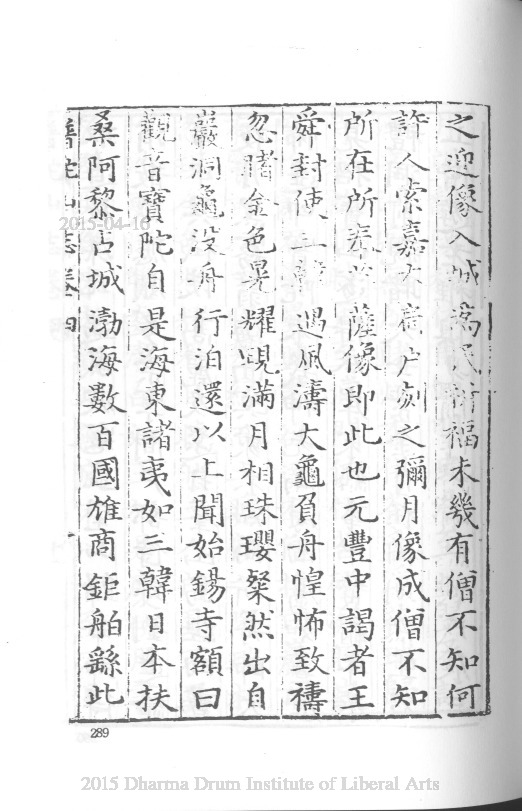 之迎像入城為民祈福未幾有僧不知何
許人索嘉木扃户刻之彌月像成僧不知
所在所奉菩薩像即此也元豐中謁者王
舜封使三韓遇風濤大龜負舟惶怖致禱
忽睹金色晃耀現滿月相珠瓔粲然出自
巖洞龜没舟行泊還以上聞始錫寺額曰
觀音寶陀自是海東諸夷如三韓日本扶
桑阿黎占城渤海數百國雄商鉅舶繇此
普陀山志卷十四
289
2015-04-16
2015 Dharma Drum Institute of Liberal Arts